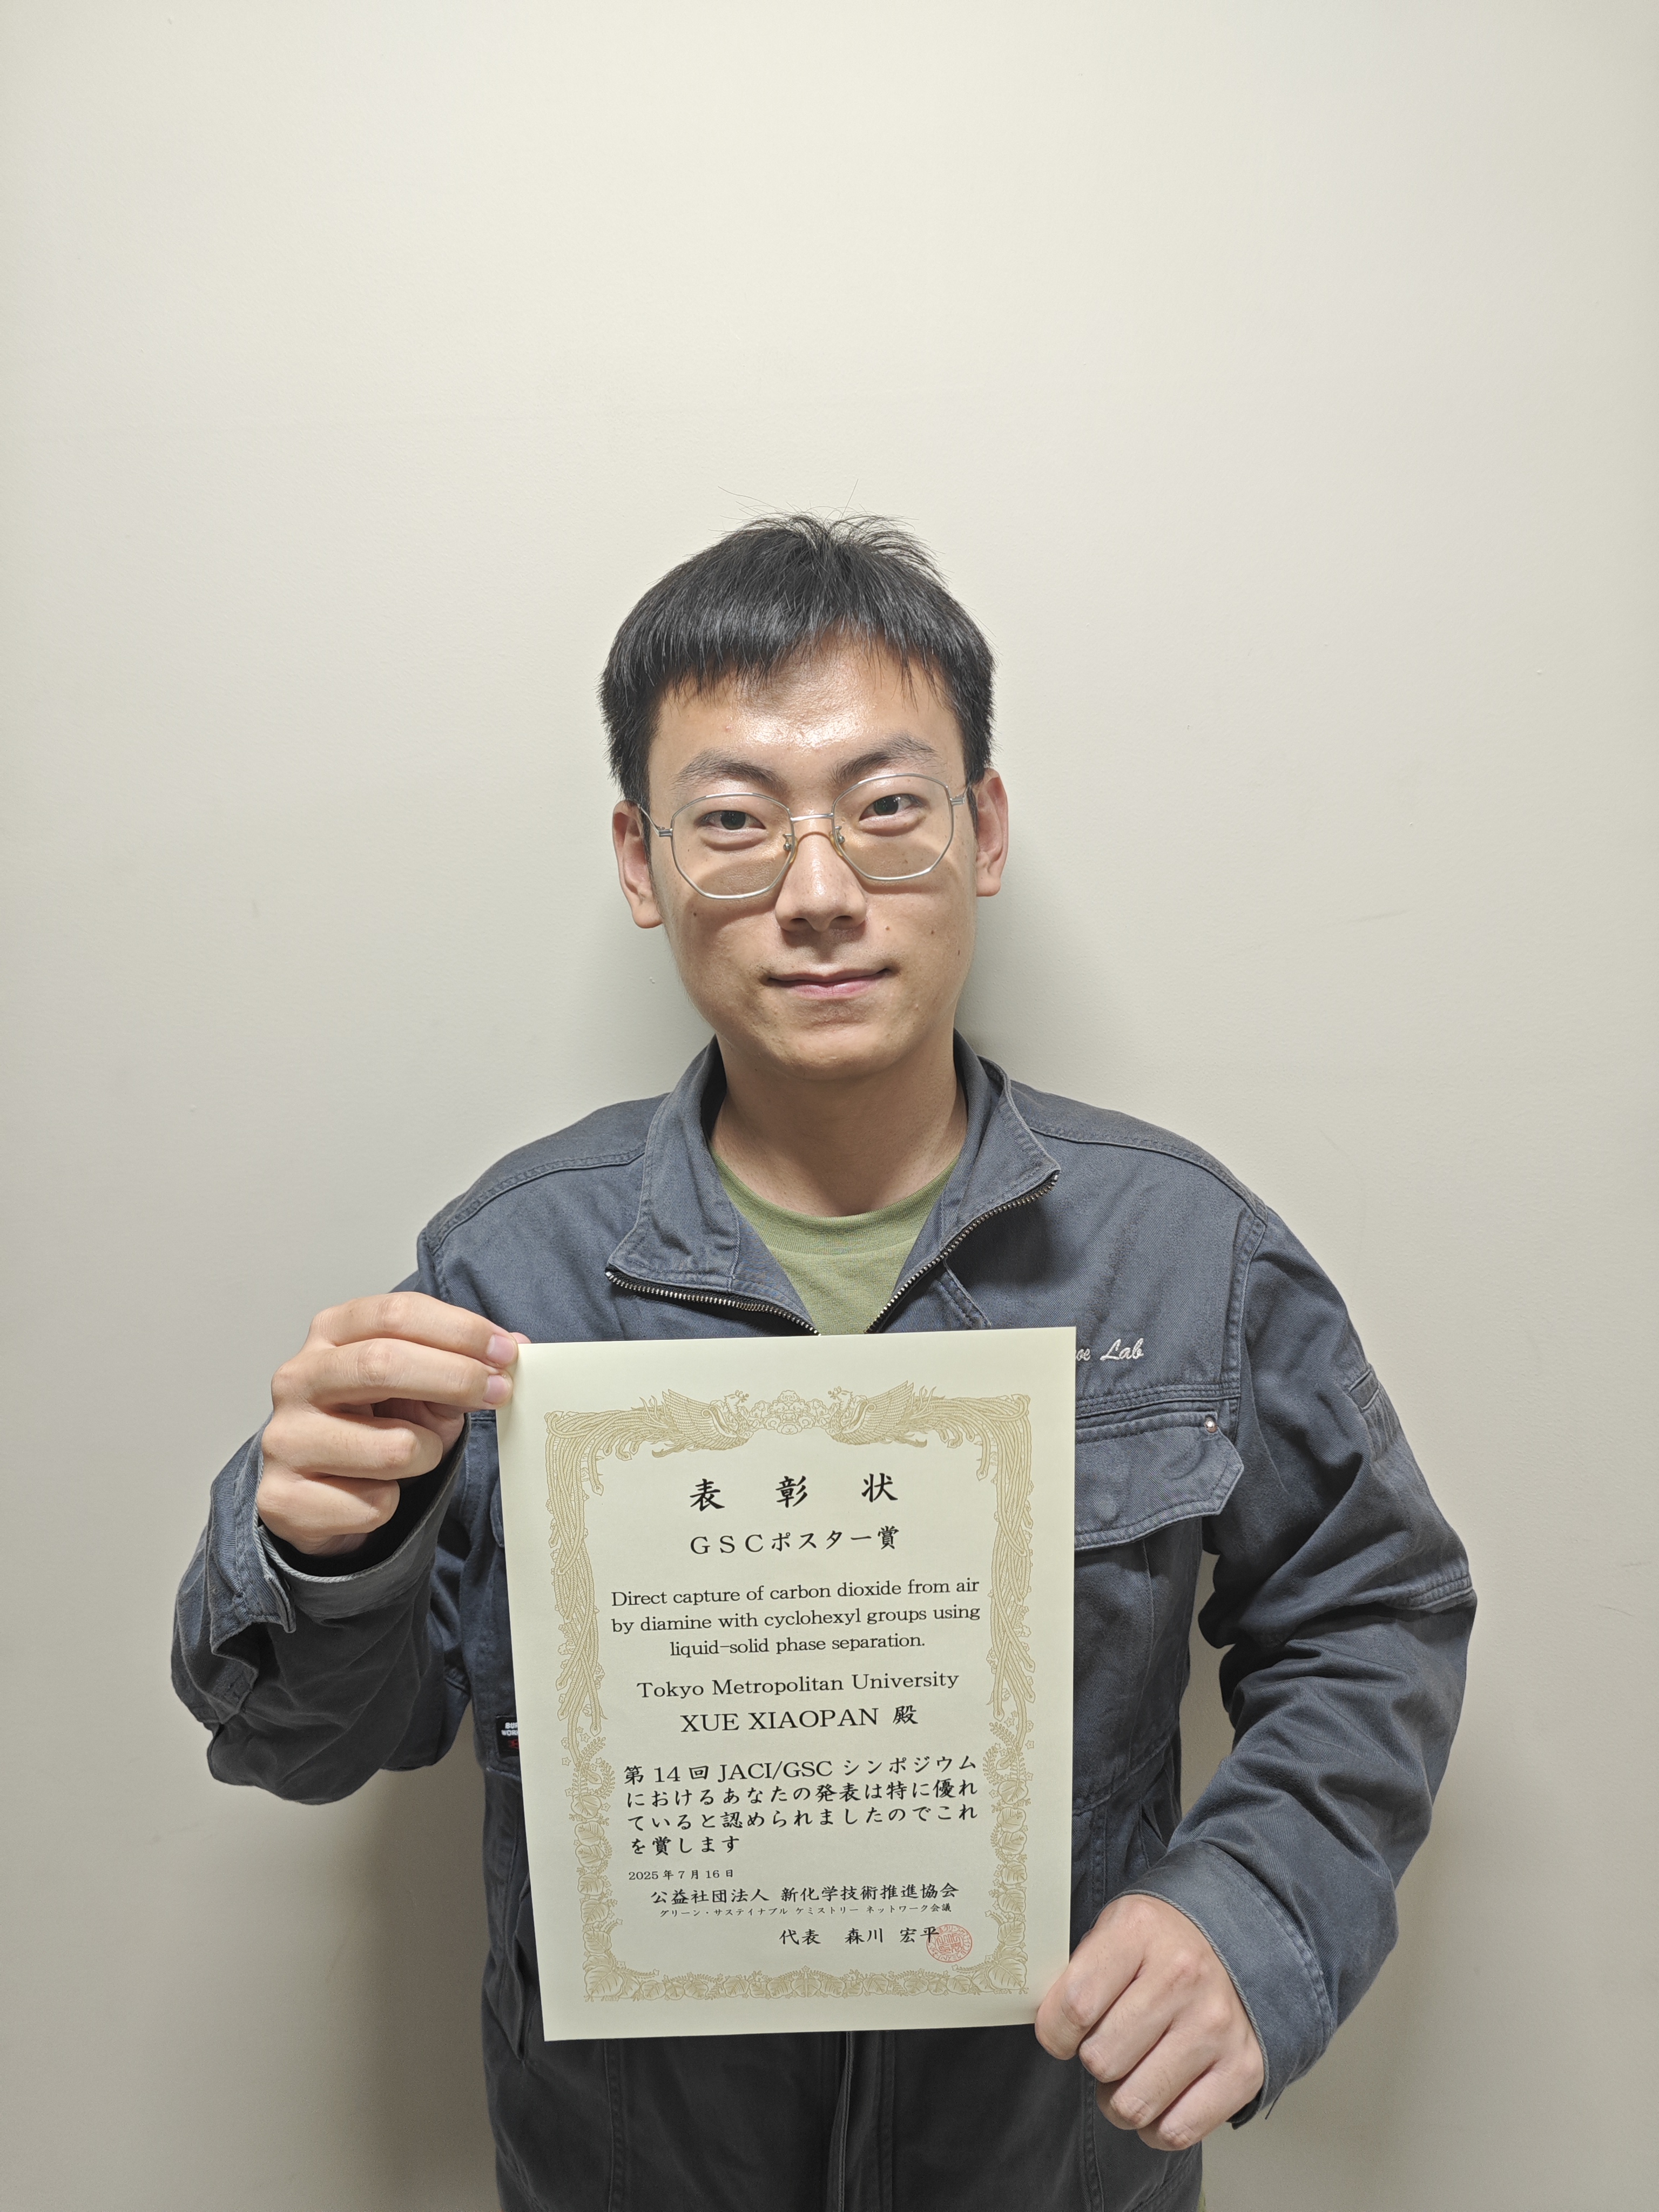 Lab
表 彰 状
GSCポスター賞
Direct capture of carbon dioxide from air
by diamine with cyclohexyl groups using
liquid-solid phase separation.
Tokyo Metropolitan University
XUE XIAOPAN 殿
第 14 回 JACI/GSC シンポジウム
におけるあなたの発表は特に優れ
ていると認められましたのでこれ
を賞します
2025 年 7 月 16 日
公益社団法人 新化学技術推進協会
グリーン・サステイナブル ケミストリー ネットワーク会議
代表 森川 宏平